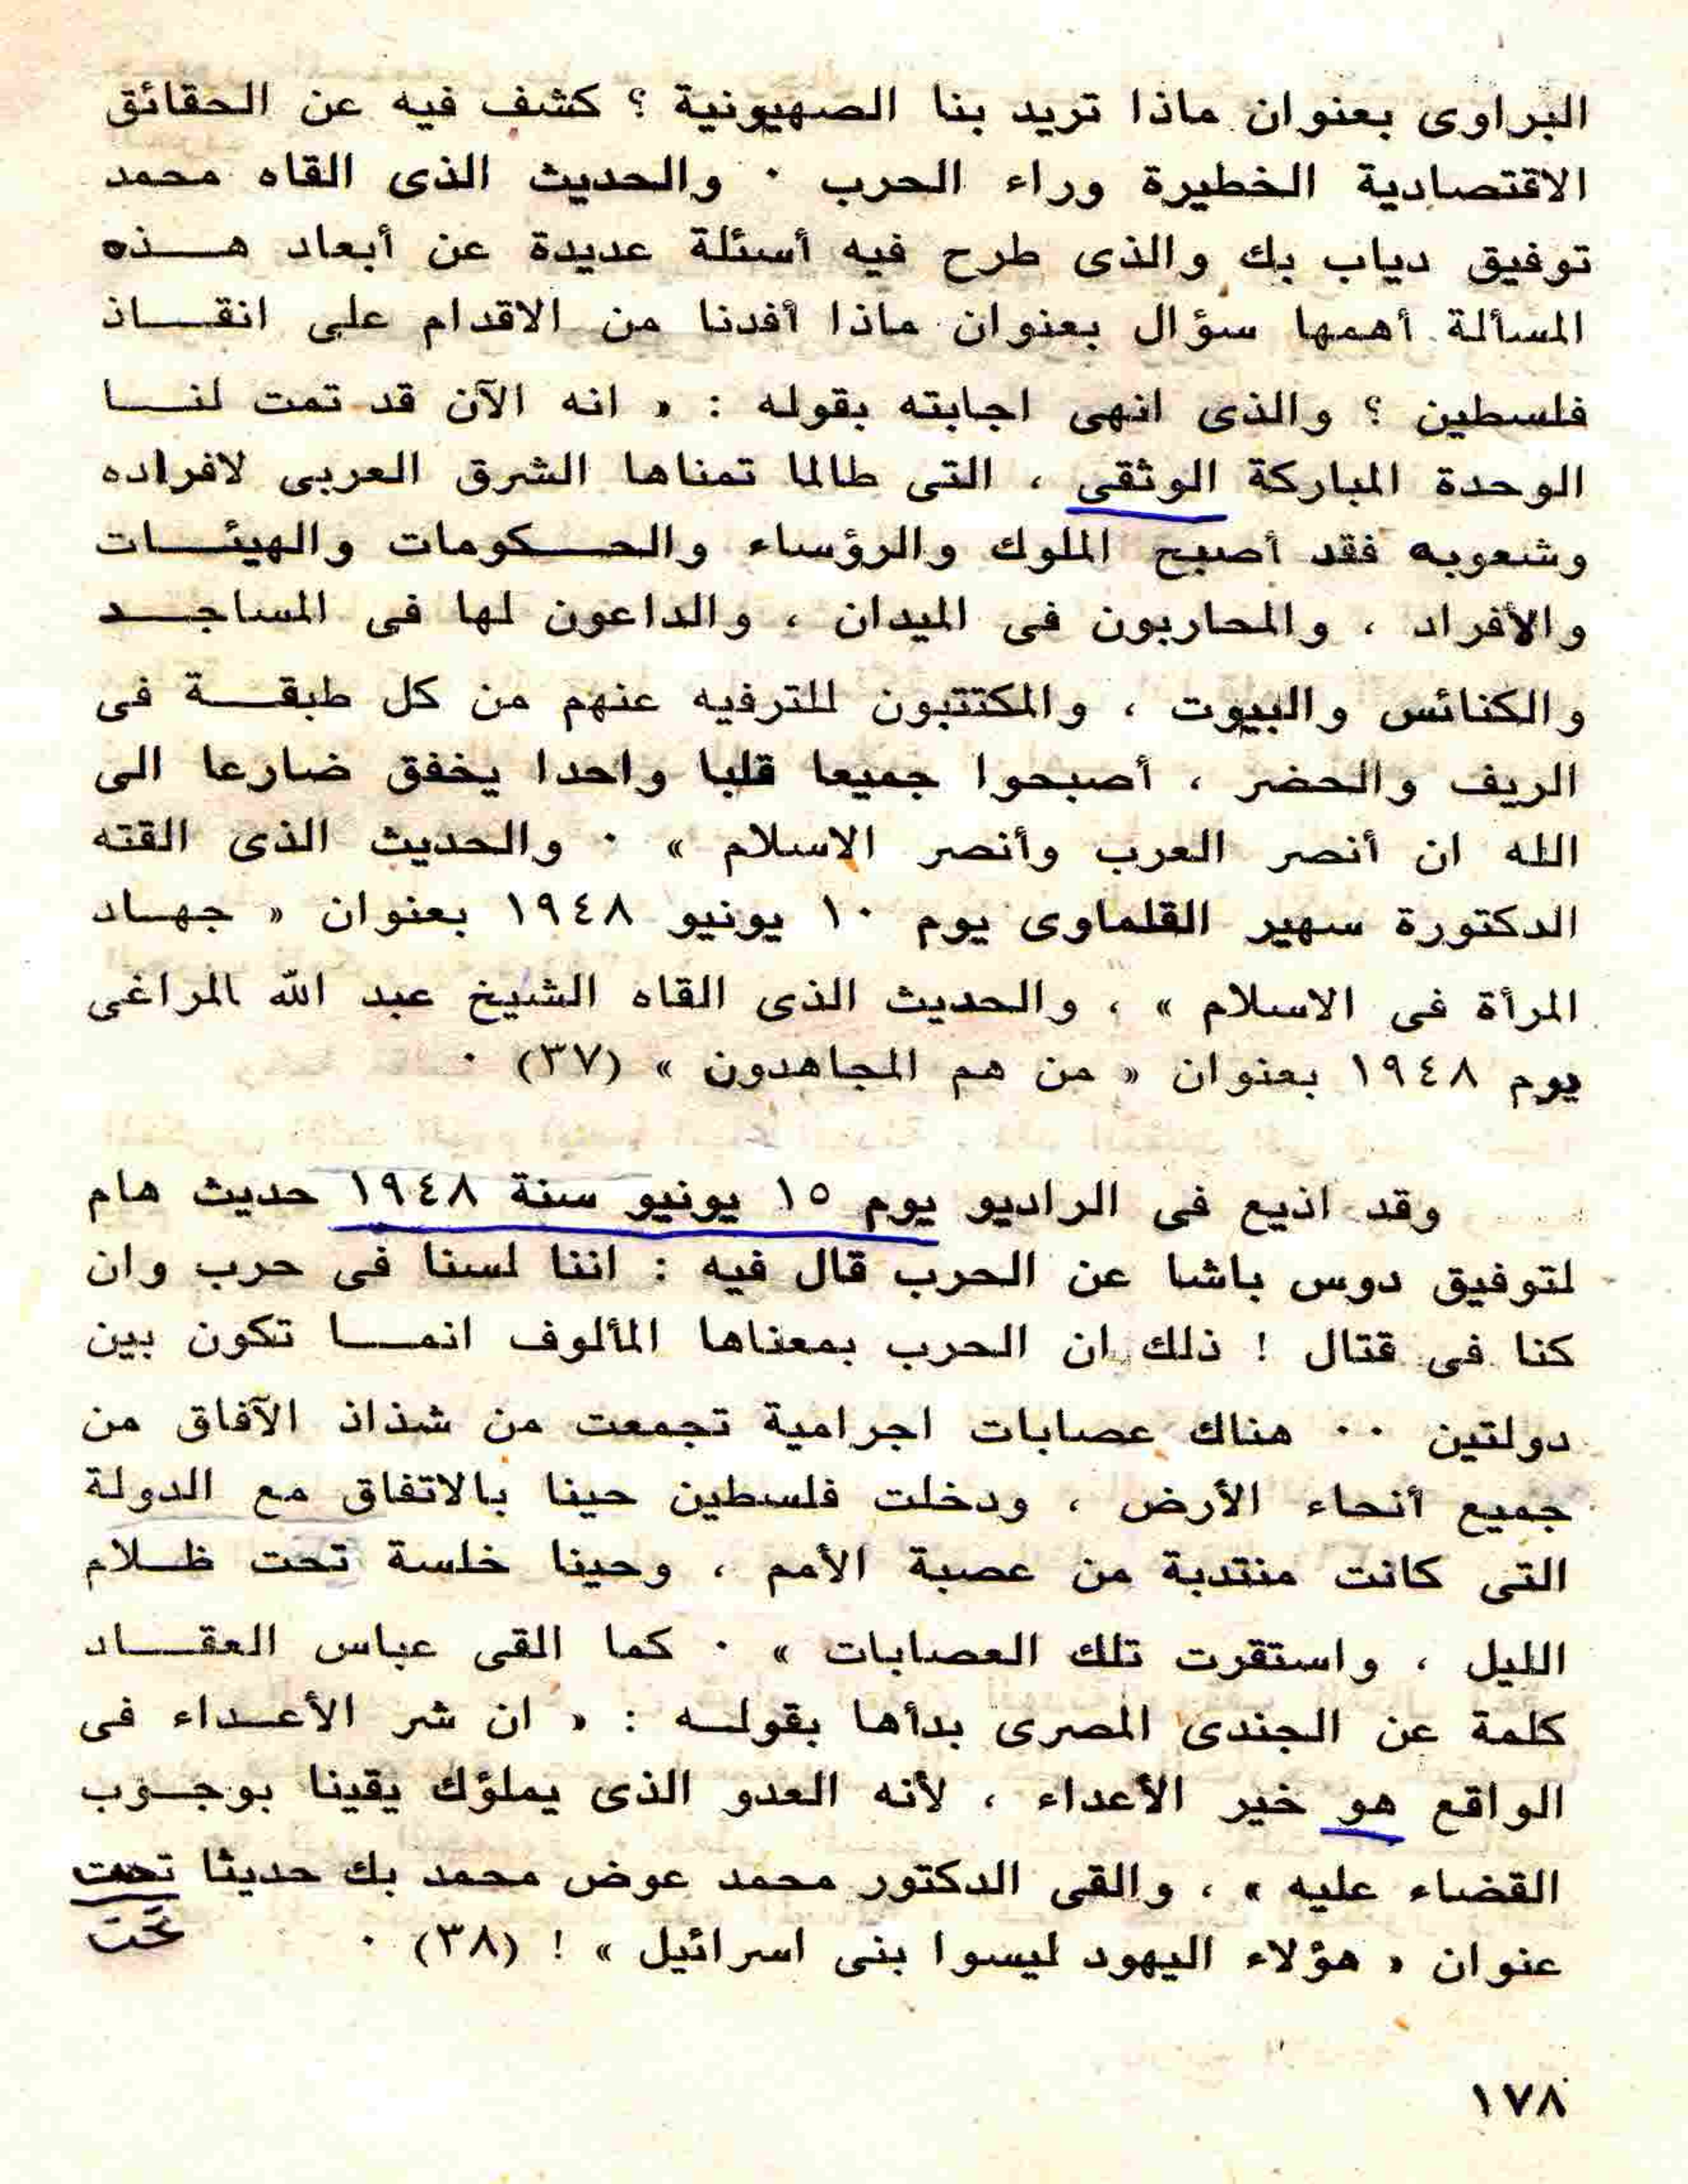 البراوى بعنوان ماذا تريد بنا الصهيونية ؟ كشف فيه عن الحقائق
الاقتصادية الخطيرة وراء الحرب ٠ والحديث الذى القاه محمد
توفيق دياب بك والذى طرح فيه أسئلة عديدة عن أبعاد هذه
المسألة أهمها سؤال بعنوان ماذا أفدنا من الاقدام على انقاذ
فلسطين ؟ والذى انهى اجابته بقوله : « انه الآن قد تمت لنا
الوحدة المباركة الوثقى ، التى طالما تمناها الشرق العربى لافراده
وشعوبه فقد أصبح الملوك والرؤساء والحكومات والهيئات
والأفراد ، والمحاربون فى الميدان ، والداعون لها فى المساجد
والكنائس والبيوت ، والمكتتبون للترفيه عنهم من كل طبقة فى
الريف والحضر ، أصبحوا جميعا قلبا واحدا يخفق ضارعا الى
الله ان أنصر العرب وأنصر الاسلام » ٠ والحديث الذى القته
الدكتورة سهير القلماوى يوم ١٠ يونيو ١٩٤٨ بعنوان « جهاد
المرأة فى الاسلام » ، والحديث الذى القاه الشيخ عبد الله المراغى
يوم ١٩٤٨ بعنوان « من هم المجاهدون » (٣٧) ٠
وقد اذيع فى الراديو يوم ١٥ يونيو سنة ١٩٤٨ حديث هام
لتوفيق دوس باشا عن الحرب قال فيه : اننا لسنا فى حرب وان
كنا فى قتال ! ذلك ان الحرب بمعناها المألوف انما تكون بين
دولتين ٠٠ هناك عصابات اجرامية تجمعت من شذاذ الآفاق من
جميع أنحاء الأرض ، ودخلت فلسطين حينا بالاتفاق مع الدولة
التى كانت منتدبة من عصبة الأمم ، وحينا خلسة تحت ظلام
الليل ، واستقرت تلك العصابات » ٠ كما القى عباس العقاد
كلمة عن الجندى المصرى بدأها بقوله : « ان شر الأعداء فى
الواقع هو خير الأعداء ، لأنه العدو الذى يملؤك يقينا بوجوب
القضاء عليه » ، والقى الدكتور محمد عوض محمد بك حديثا تحت
عنوان « هؤلاء اليهود ليسوا بنى اسرائيل » ! (٣٨) ٠
تحت
١٧٨